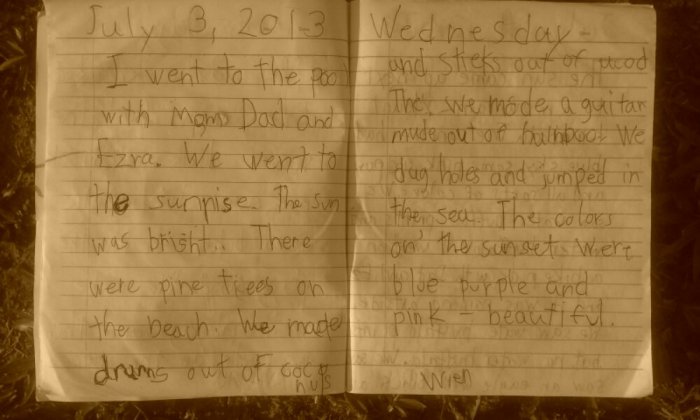 July 3, 2013
I went to the pool
with Mom, Dad and
Ezra. We went to
the sunrise. The sun
was bright. There
were pine trees on
the beach. We made
drums out of coco
nuts
Wednesday-
and sticks out of wood
The we made a guitar
mude out of bainboo. We
dug holes and jumped in
the sea. The colors
on the sunset were
blue purple and
pink - beautiful.